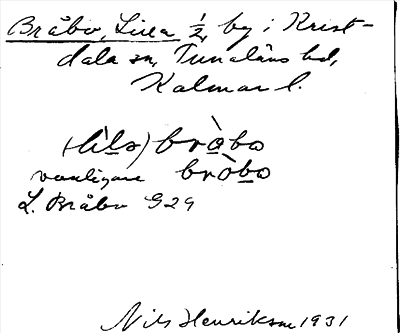 Bråbo, Lilla ½, by i Krist-
dala sn, Tunaläns hd,
Kalmar l.
(lìls) bròbo
vanligare bròbo
L. Bråbo G29
Nils Henrikson 1931